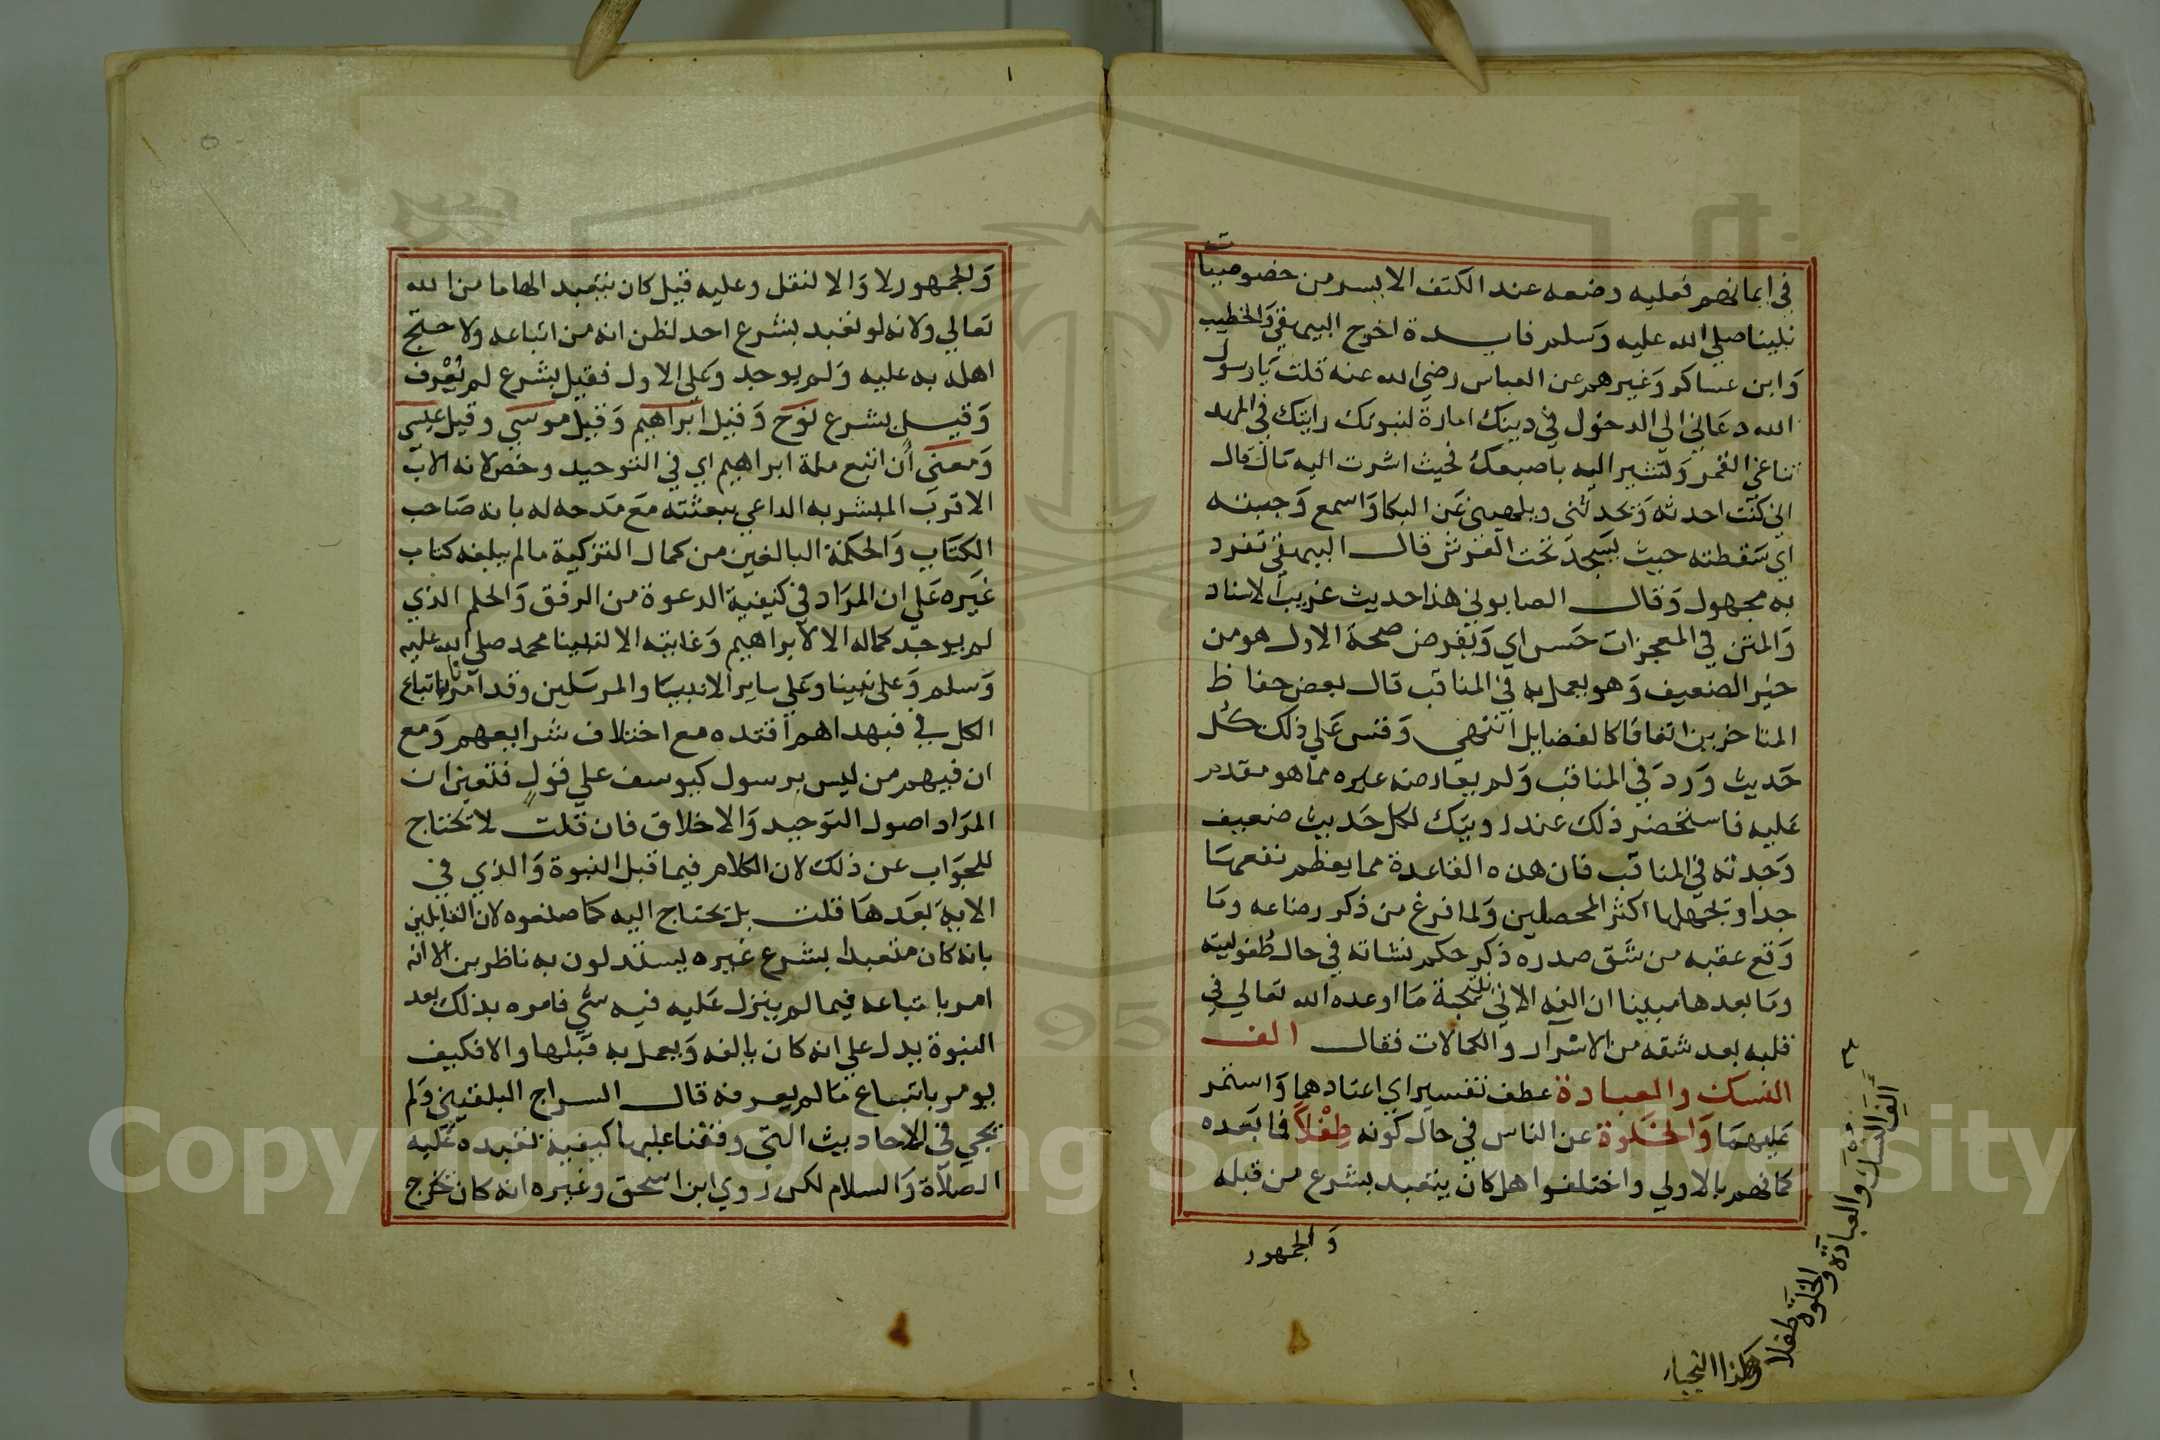 في ايمانهم فعليه وضعه عند الكتف الايسر من خصوصيات
نبينا صلي الله عليه وسلم فايدة اخرج البيهقي والخطيب
وابن عساكر وغيرهم عن العباس رضي الله عنه قلت يا رسول
الله دعاني الي الدخول في دينك امارة لنبوتك رايتك في المهد
تناغي القمر وتشير اليه باصبعك فحيث اشرت اليه مال قال
اني كنت احدثه ويحدثني ويلهيني عن البكا واسمع وجبته
اي سقطته حيث يسجد تحت العرش قال البيهقي تفرد
به مجهول وقال الصابوني هذا حديث غريب الاسناد
والمتن في المعجزات حسن اي وبفرض صحة الاول هو من
حيز الضعيف وهو يعمل به في المناقب قال بعض حفاظ
المتاخرين اتفاقا كالفضايل انتهي وقس علي ذلك كل
حديث ورد في المناقب ولم يعارضه غيره مما هو مقدم
عليه فاستحضر ذلك عند رويتك لكل حديث ضعيف
وجدته في المناقب فان هذه القاعدة مما يعظم نفعها
جدا ويجهلها اكثر المحصلين ولما فرغ من ذكر رضاعه وما
وقع عقبه من شق صدره ذكر حكم نشاته في حال طفوليته
وما بعدها مبينا ان الفه الاتي نتيجة ما اودعه الله تعالي في
قلبه بعد شقه من الاسرار والكمالات فقال الف
النسك والعبادة عطف تفسير اي اعتادهما واستمر
عليهما والخلوة عن الناس في حال كونه طفلا فما بعده
كانهم بالاولي واختلفوا هل كان يتعبد بشرع من قبله
والجمهور
الف النسك والعبادة والخلوة طفلا
وهكذا النجباء
١
والجمهور لا والا لنقل وعليه قيل كان يتعبد الهاما من الله
تعالي ولانه لو تعبد بشرع احد لظن انه من اتباعه ولاحتج
اهله به عليه ولم يوجد وعلي الاول فقيل بشرع لم يعرف
وقيل بشرع نوح وقيل ابراهيم وقيل موسي وقيل عيسي
ومعني ان اتبع ملة ابراهيم اي في التوحيد وخص لانه الاب
الاقرب المبشر به الداعي ببعثته مع مدحه له بانه صاحب
الكتاب والحكمة البالغين من كمال التزكية ما لم يبلغه كتاب
غيره علي ان المراد في كيفية الدعوة من الرفق والحلم الذي
لم يوجد كماله الا لابراهيم وغايته الا لنبينا محمد صلي الله عليه
وسلم وعلي نبينا وعلي ساير الانبيا والمرسلين وقد امر باتباع
الكل في فبهداهم اقتده مع اختلاف شرايعهم ومع
ان فيهم من ليس برسول كيوسف علي قول فتعين ان
المراد اصول التوحيد والاخلاق فان قلت لا تحتاج
للجواب عن ذلك لان الكلام فيما قبل النبوة والذي في
الاية بعدها قلت بل تحتاج اليه كما صنعوه لان القايلين
بانه كان متعبدا بشرع غيره يستدلون به ناظرين الا انه
امر باتباعه فيما لم ينزل عليه فيه شي فامره بذلك بعد
النبوة يدل علي انه كان يالفه ويعمل به قبلها والا فكيف
يومر باتباع ما لم يعرفه قال السراج البلقيني ولم
تجي في الاحاديث التي وقفنا عليها كيفية تعبده عليه
الصلاة والسلام لكن روي ابن اسحق وغيره انه كان يخرج